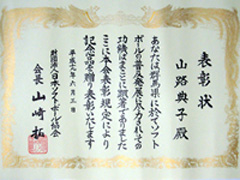 表彰状
山路典子殿
あなたは群馬県に於てソフト
ボールの普及発展に尽力されその
功績はまことに顕著でありました
ここに本会表彰規定により
記念品を贈り表彰いたします
平成六年六月三日
財団法人日本ソフトボール協会
会長 山崎拓